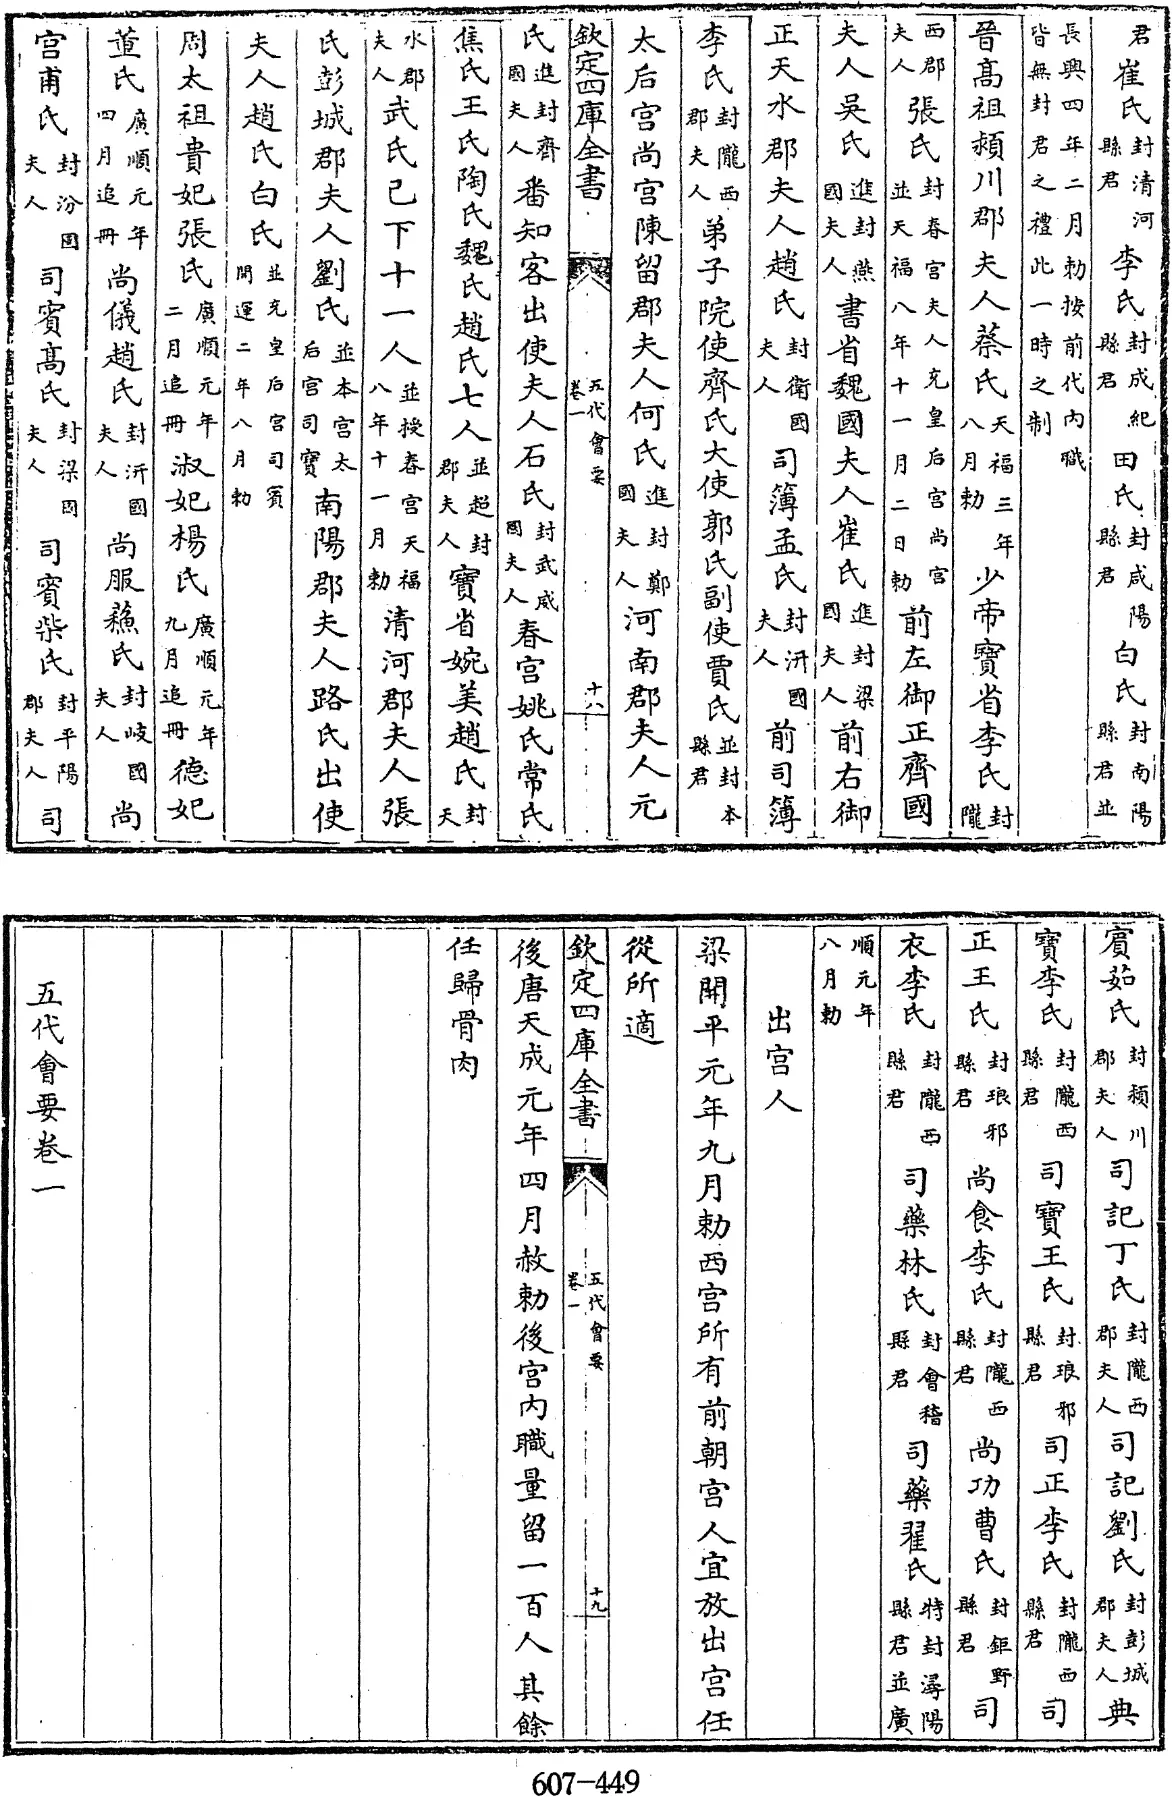 君崔氏封清河縣君李氏封成紀縣君田氏封咸陽縣君白氏封南陽縣君並
長興四年二月勅按前代内職皆無封君之禮此一時之制
晉髙祖潁川郡夫人蔡氏天福三年八月勅少帝寶省李氏封隴
西郡夫人張氏封春宫夫人充皇后宫尚宫並天福八年十一月二日勅前左御正齊國
夫人吳氏進封燕國夫人書省魏國夫人崔氏進封梁國夫人前右御
正天水郡夫人趙氏封衛國夫人司簿孟氏封汧國夫人前司簿
李氏封隴西郡夫人弟子院使齊氏大使郭氏副使賈氏並封本縣君
太后宫尚宫陳留郡夫人何氏進封鄭國夫人河南郡夫人元
欽定四庫全書 五代會要 卷一 十八
氏進封齊國夫人番知客出使夫人石氏封武威國夫人春宫姚氏常氏
焦氏王氏陶氏魏氏趙氏七人並超封郡夫人寶省婉美趙氏封天
水郡夫人武氏已下十一人並授春宫天福八年十一月勅清河郡夫人張
氏彭城郡夫人劉氏並本宫太后宫司寶南陽郡夫人路氏出使
夫人趙氏白氏並充皇后宫司賓開運二年八月勅
周太祖貴妃張氏廣順元年二月追冊淑妃楊氏廣順元年九月追冊德妃
董氏廣順元年四月追冊尚儀趙氏封汧國夫人尚服蘓氏封岐國夫人尚
宫甫氏封汾國夫人司賓髙氏封梁國夫人司賓柴氏封平陽郡夫人司
賓茹氏封潁川郡夫人司記丁氏封隴西郡夫人司記劉氏封彭城郡夫人典
寶李氏封隴西縣君司寶王氏封琅邪縣君司正李氏封隴西縣君司
正王氏封琅邪縣君尚食李氏封隴西縣君尚功曹氏封鉅野縣君司
衣李氏封隴西縣君司藥林氏封會稽縣君司藥翟氏特封潯陽縣君並廣
順元年八月勅
出宫人
梁開平元年九月勅西宫所有前朝宫人宜放出宫任
從所適
欽定四庫全書 五代會要 卷一 十九
後唐天成元年四月赦勅後宫内職量留一百人其餘
任歸骨肉
五代會要卷一
607-449